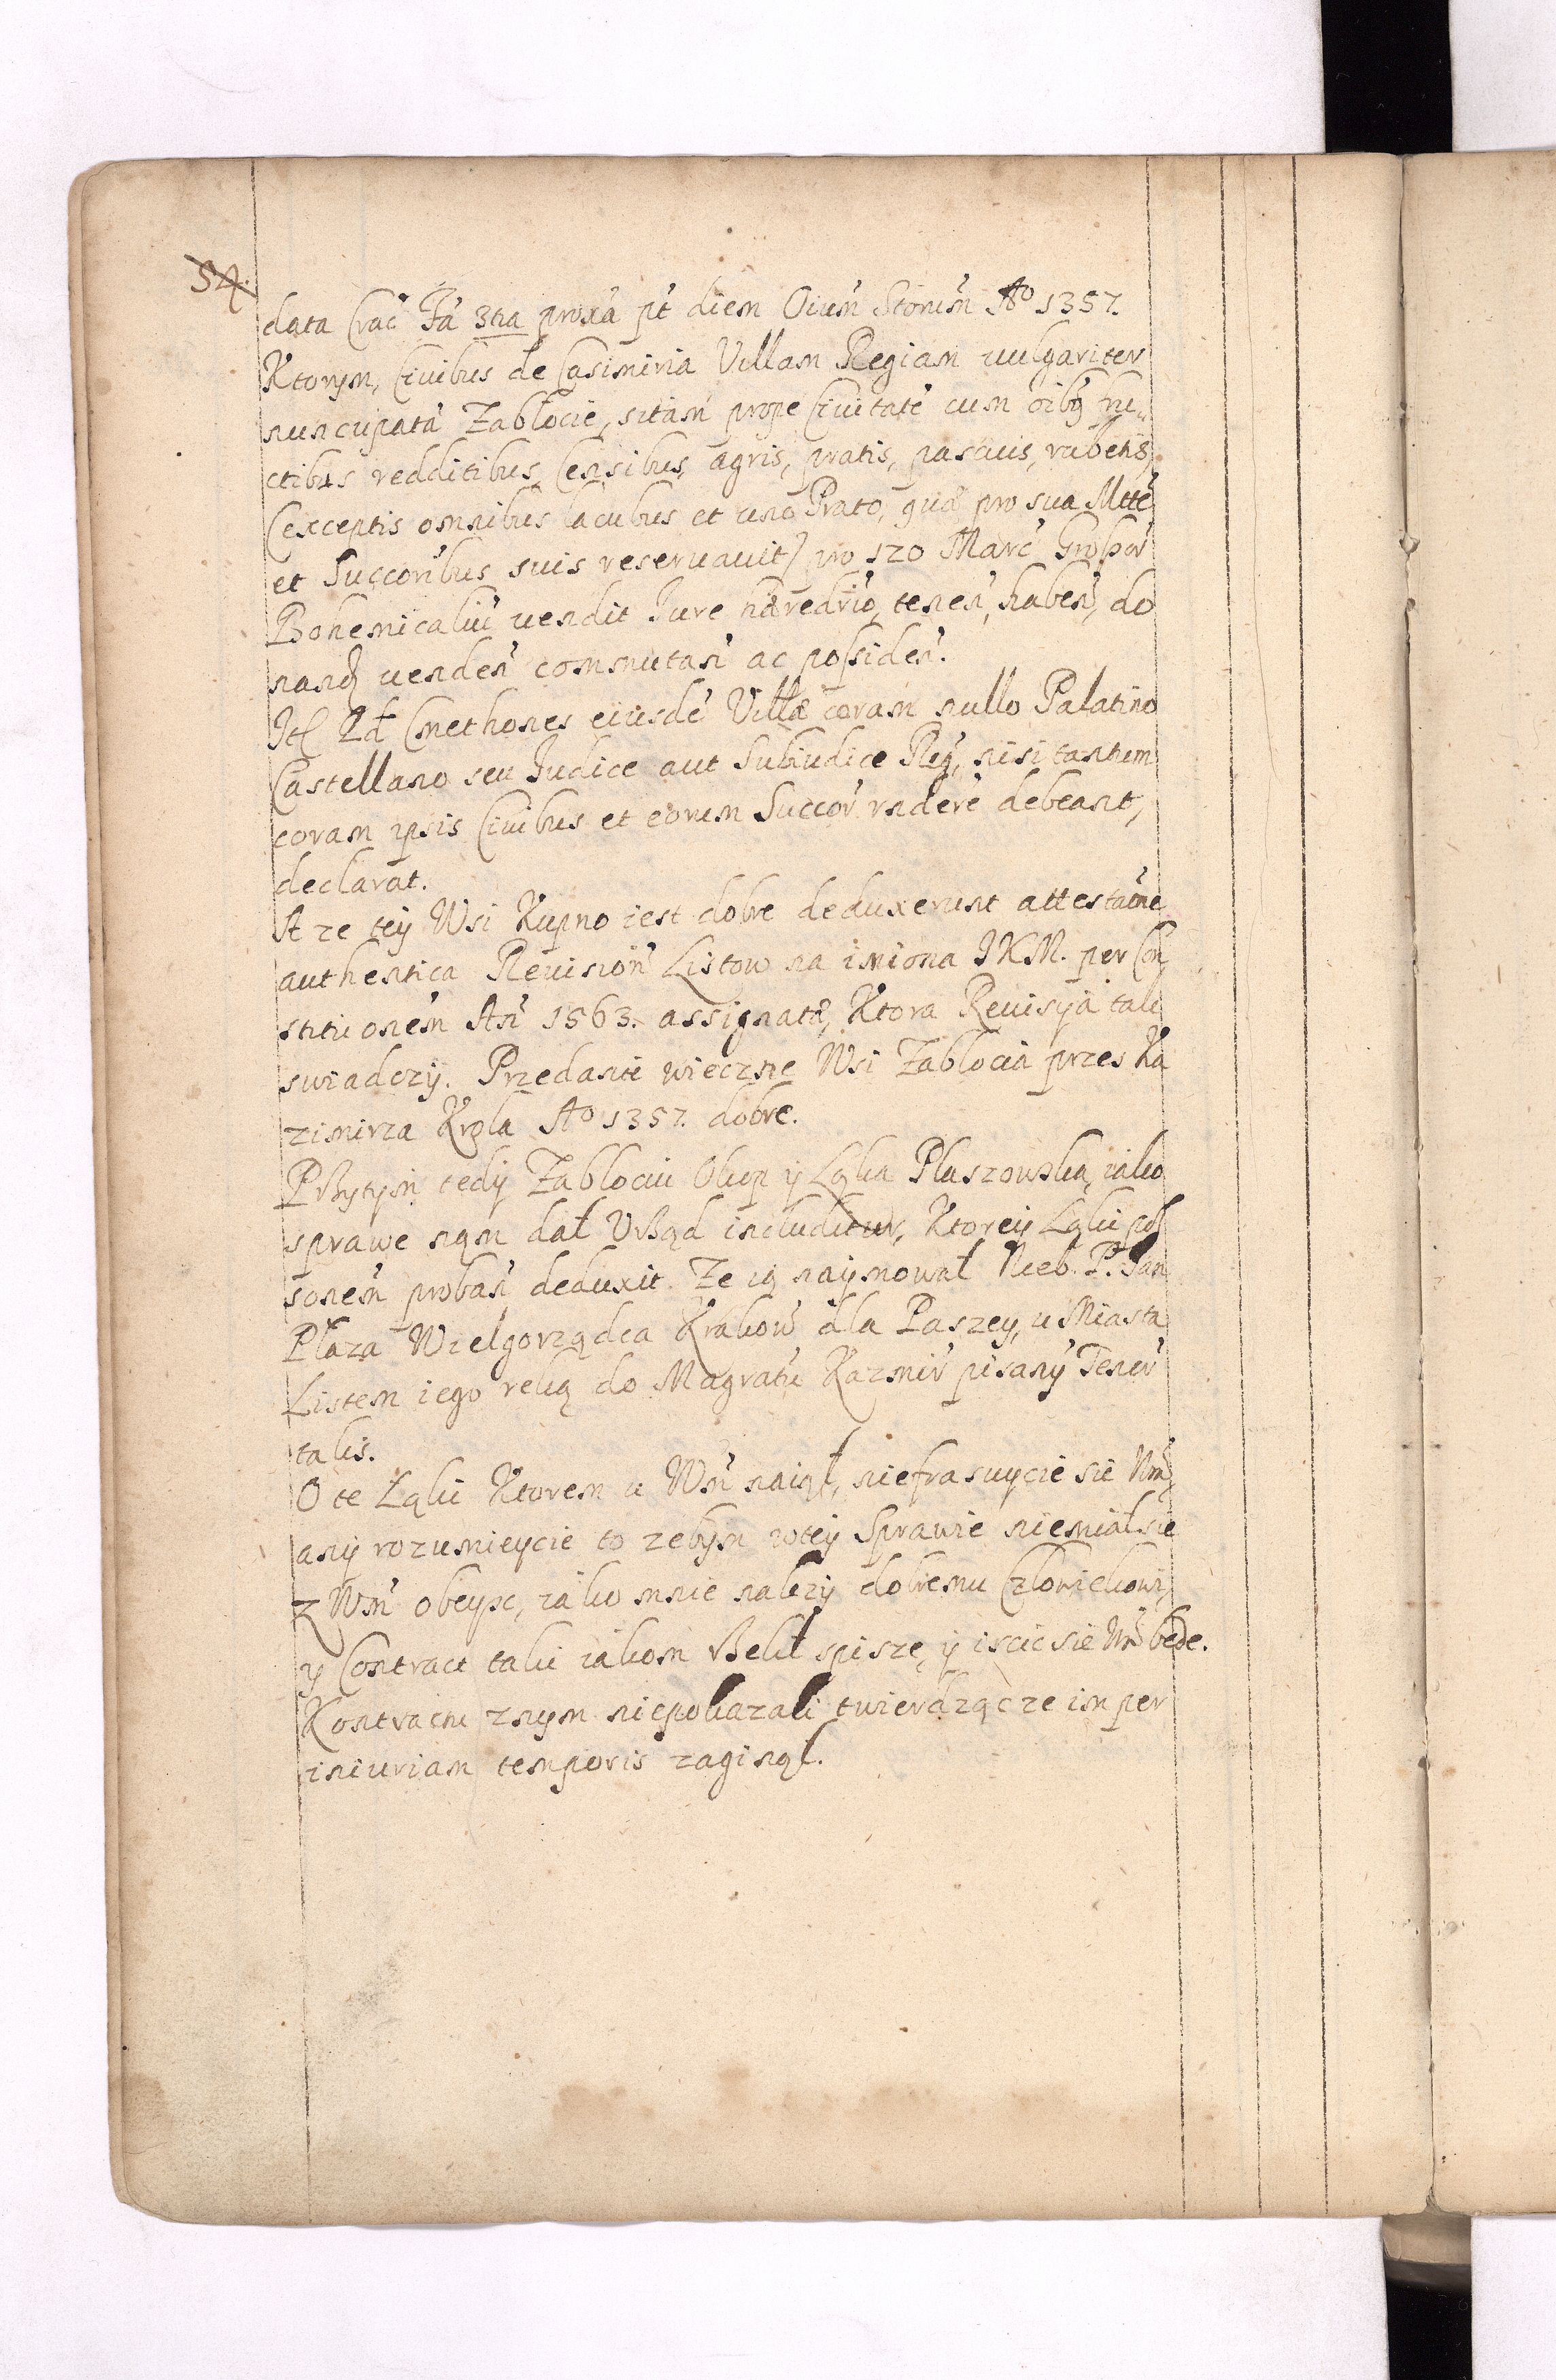 54.
data Crac̃ Fã 3tia proxã pt̃ diem Oium̃ Storum̃ Aº 1357.
Ktorym, Ciuibus de Casimiria Villam Regiam uulgariter
nuncupatã Zabłocie, sitam̃ prope Ciuitatẽ cum oibq fru„
ctibus redditibus, Censibus, agris, pratis, pascuis, rubetis,
(exceptis omnibus lacubus et uno Prato, quæ pro sua Mtte
et Succoribus suis reseruauit) pro 120 Marc̃ Großor̃
Bohemicaliũ uendit Jure hæredrio, teneñ, habeñ, do
nand uendeñ commutañ ac possideñ.
Kmethones eiusdẽ Villæ coram nullo Palatino
Castellano seu Judice aut Subiudice Reg, nisi tantum
coram ipsis Ciuibus et eorum Succor̃ rndere debeant,
declarat.
A ze tey Wsi Kupno iest dobre deduxerunt attestãone
authentica Reuision̄ Listow na imiona JKM. per Con
stitutionem An̄ 1563. assignatæ, Ktora Reuisya tak
swiadczy. Przedanie wieczne Wsi Zablocia przes Ka
zimirza Krola Aº 1357. dobre.
Przytym tedy Zablociu Okop y Łąka Płaszowska, iako
sprawe nąm dał Vrząd includitur, Ktorey Łąki pos
sonem̃ proban̄ deduxit. Ze ią naymował Nieb. P. Jan
Płaza Wielgorządca Krakow̃ dla Paszey, u Miasta
Listem iego reką do Magratu Kazmir̃ pisany Tenor̃
talis.
O te Łąki Ktorem u Wm̃ naiął, niefrasuycie sie Wm̃,
any rozumieycie to zebym wtey Sprawie niemiał sie
z Wm̃ obeysc, iako mnie nalezy dobremu Człowiekowi,
y Contract taki iakom Rzekł spiszę, y iscic sie Wm̃ będe.
Kontractu znym niepokazali twierdząc ze im per
iniuriam temporis zaginął.